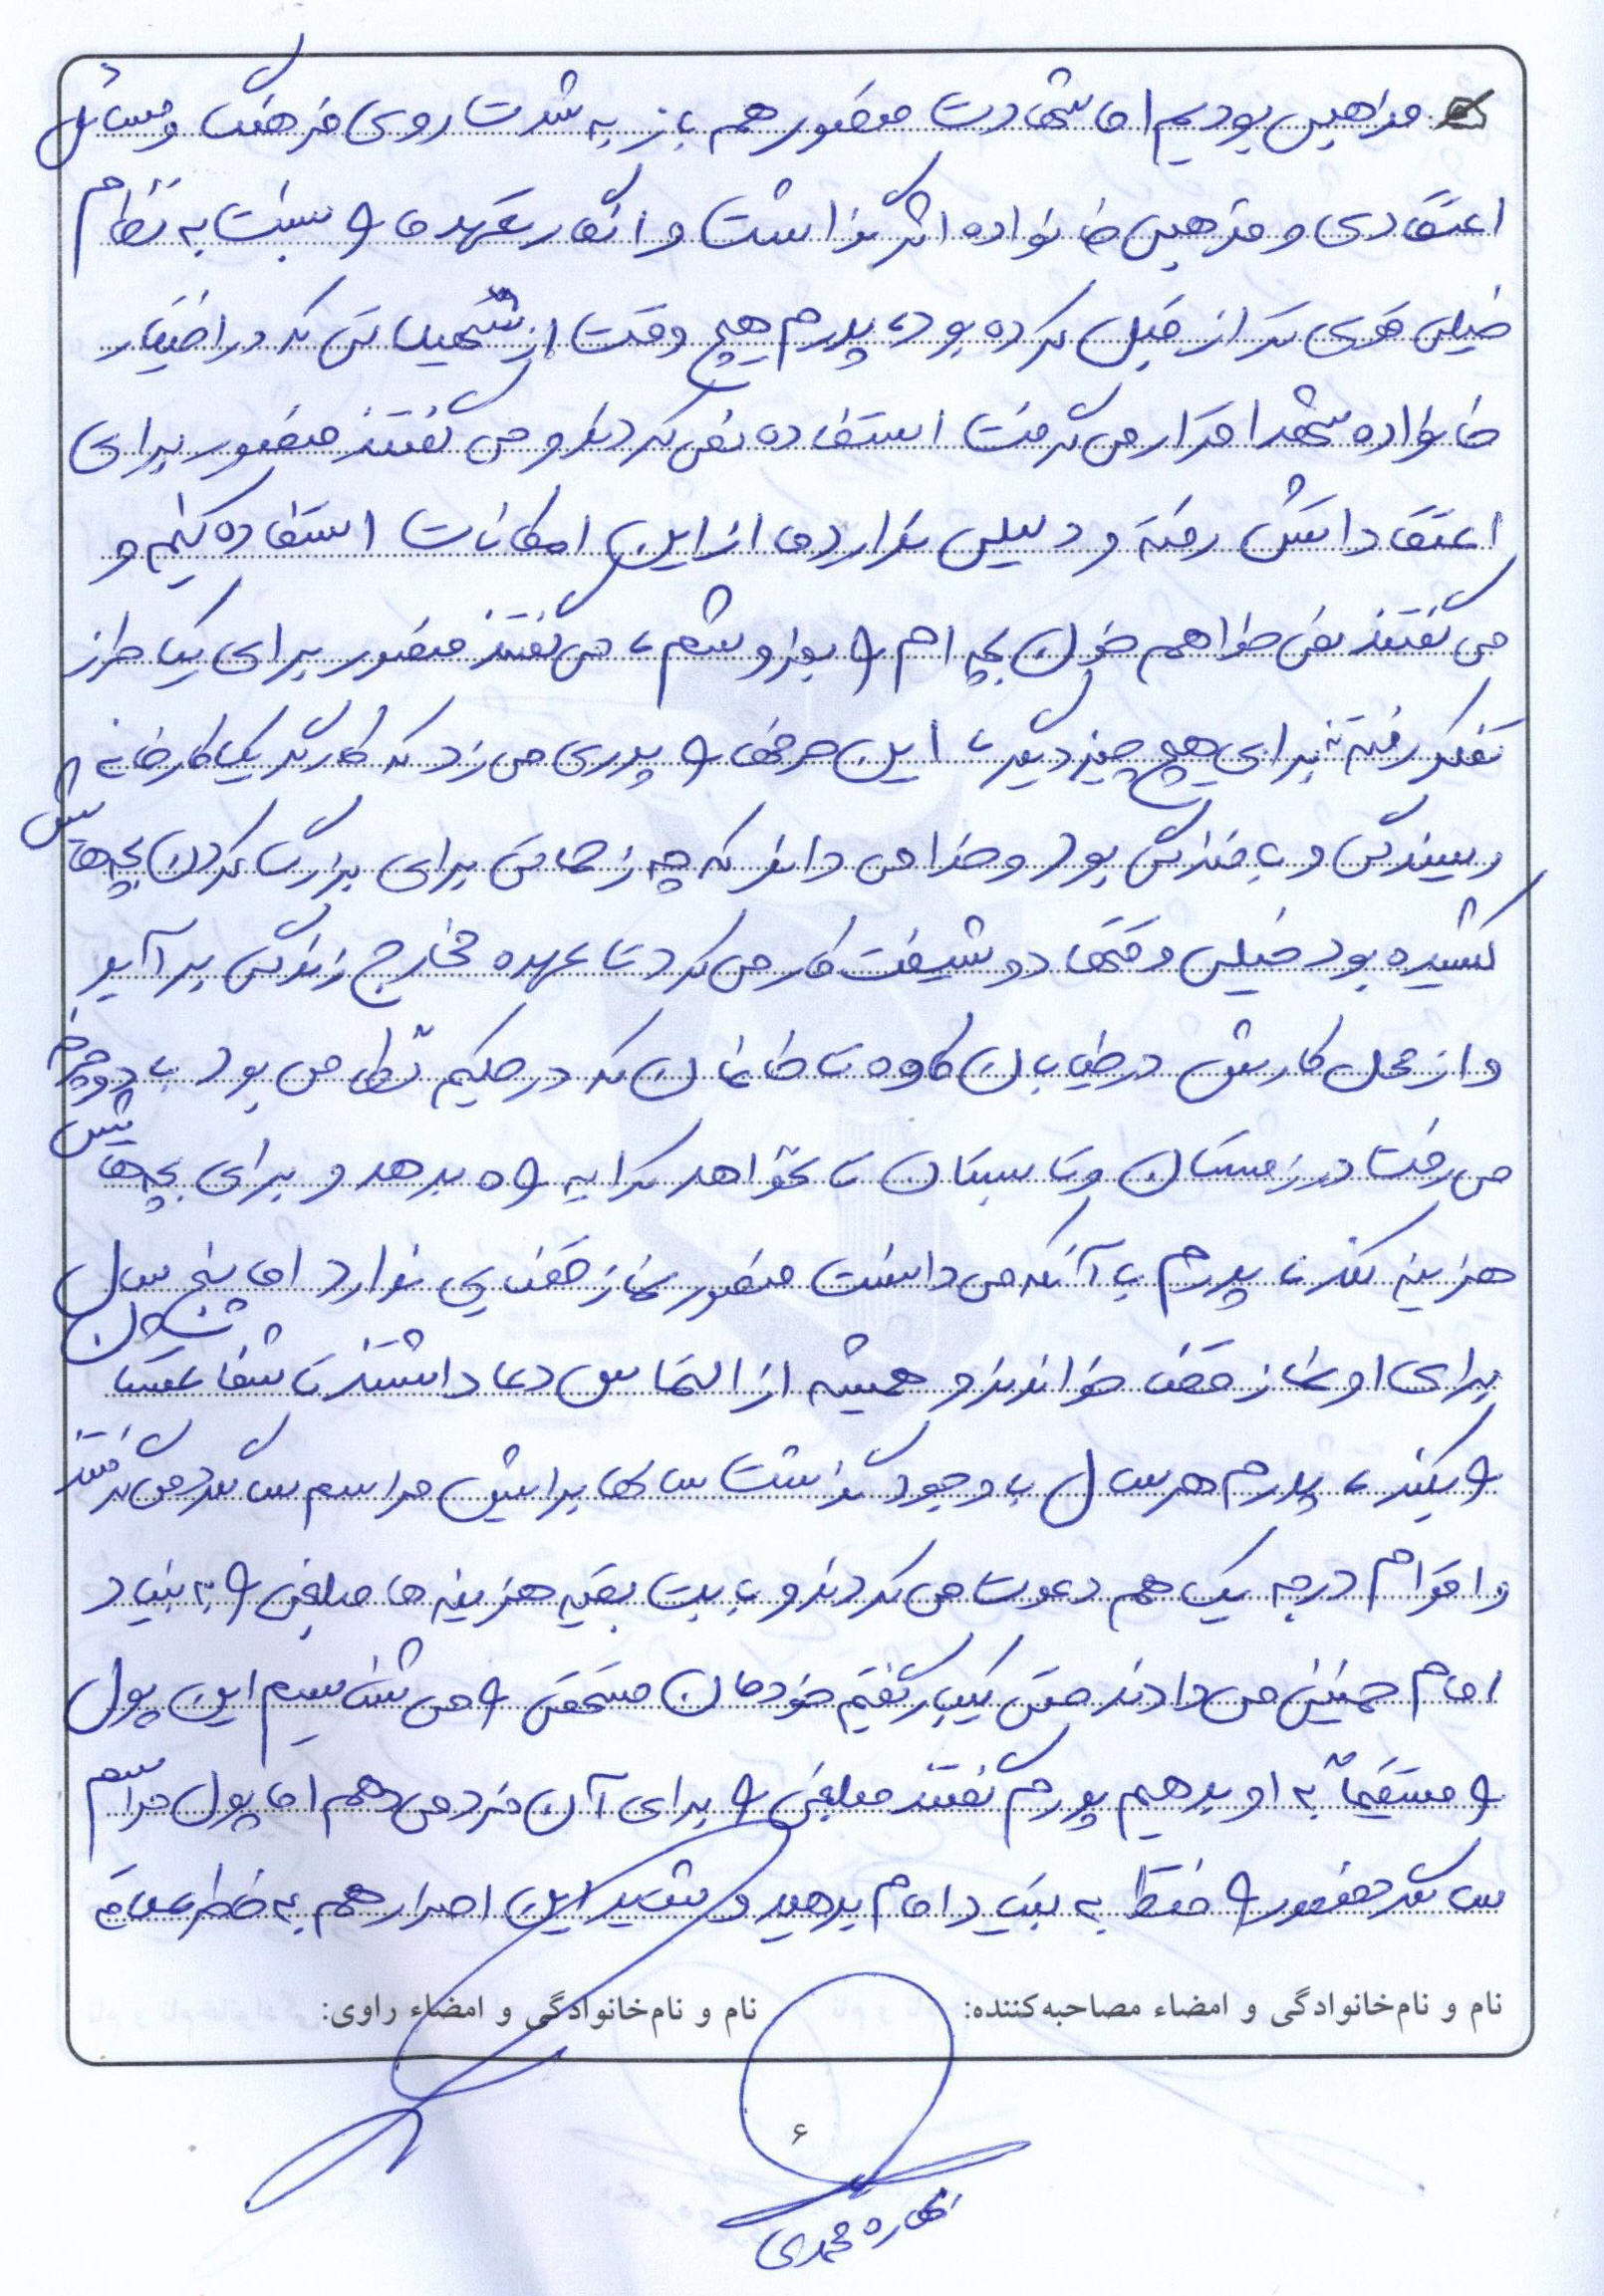 مذهبی بودیم اما شهادت منصور هم باز به شدت روی فرهنگ و مسائل
اعتقادی و مذهبی خانواده اثر گذاشت و انگار تعهد ما رو نسبت به نظام
خیلی قوی تر از قبل کرده بود، پدرم هیچ وقت از تسهیلاتی که در اختیار
خانواده شهدا قرار می گرفت استفاده نمی کردند و می گفتند منصور برای
اعتقاداتش رفته و دلیلی ندارد ما از این امکانات استفاده کنیم و
می گفتند نمی خواهم خون بچه ام رو بفروشم، می گفتند منصور برای یک طرز
تفکر رفته نه برای هیچ چیز دیگر، این حرفها رو پدری می زد که کارگر یک کارخانه
ریسندگی و بافندگی بود و خدا می داند که چه زحماتی برای بزرگ کردن بچه هایش
کشیده بود خیلی وقتها دو شیفت کار می کرد تا عهده مخارج زندگی بر آید
و از محل کارش در خیابان کاوه تا خانمان که در حکیم نظامی بود با دوچرخه
می رفت در زمستان و تابستان تا نخواهد کرایه راه بدهد و برای بچه هایش
هزینه نکند، پدرم با آنکه می دانست منصور نماز قضایی ندارد اما پنج سال
برای او نماز قضا خواندند و همیشه از او التماس دعا داشتند تا شفاعتشان
رو بکند، پدرم هر سال با وجود گذشت سالها برایش مراسم سالگرد می گرفتند
و اقوام درجه یک هم دعوت می کردند و بابت بقیه هزینه ها مبلغی رو به بنیاد
امام خمینی می دادند حتی یکبار گفتیم خودمان مستحقی رو می شناسیم این پول
رو مستقیماً به او بدهیم پدرم گفتند مبلغی رو برای آن فرد می دهم اما پول مراسم
سالگرد منصور رو فقط به بنیاد امام بدهید و شاید این اصرار هم به خاطر علاقه
نام و نام‌خانوادگی و امضاء مصاحبه‌کننده:
نام و نام‌خانوادگی و امضاء راوی:
۶
محمدی